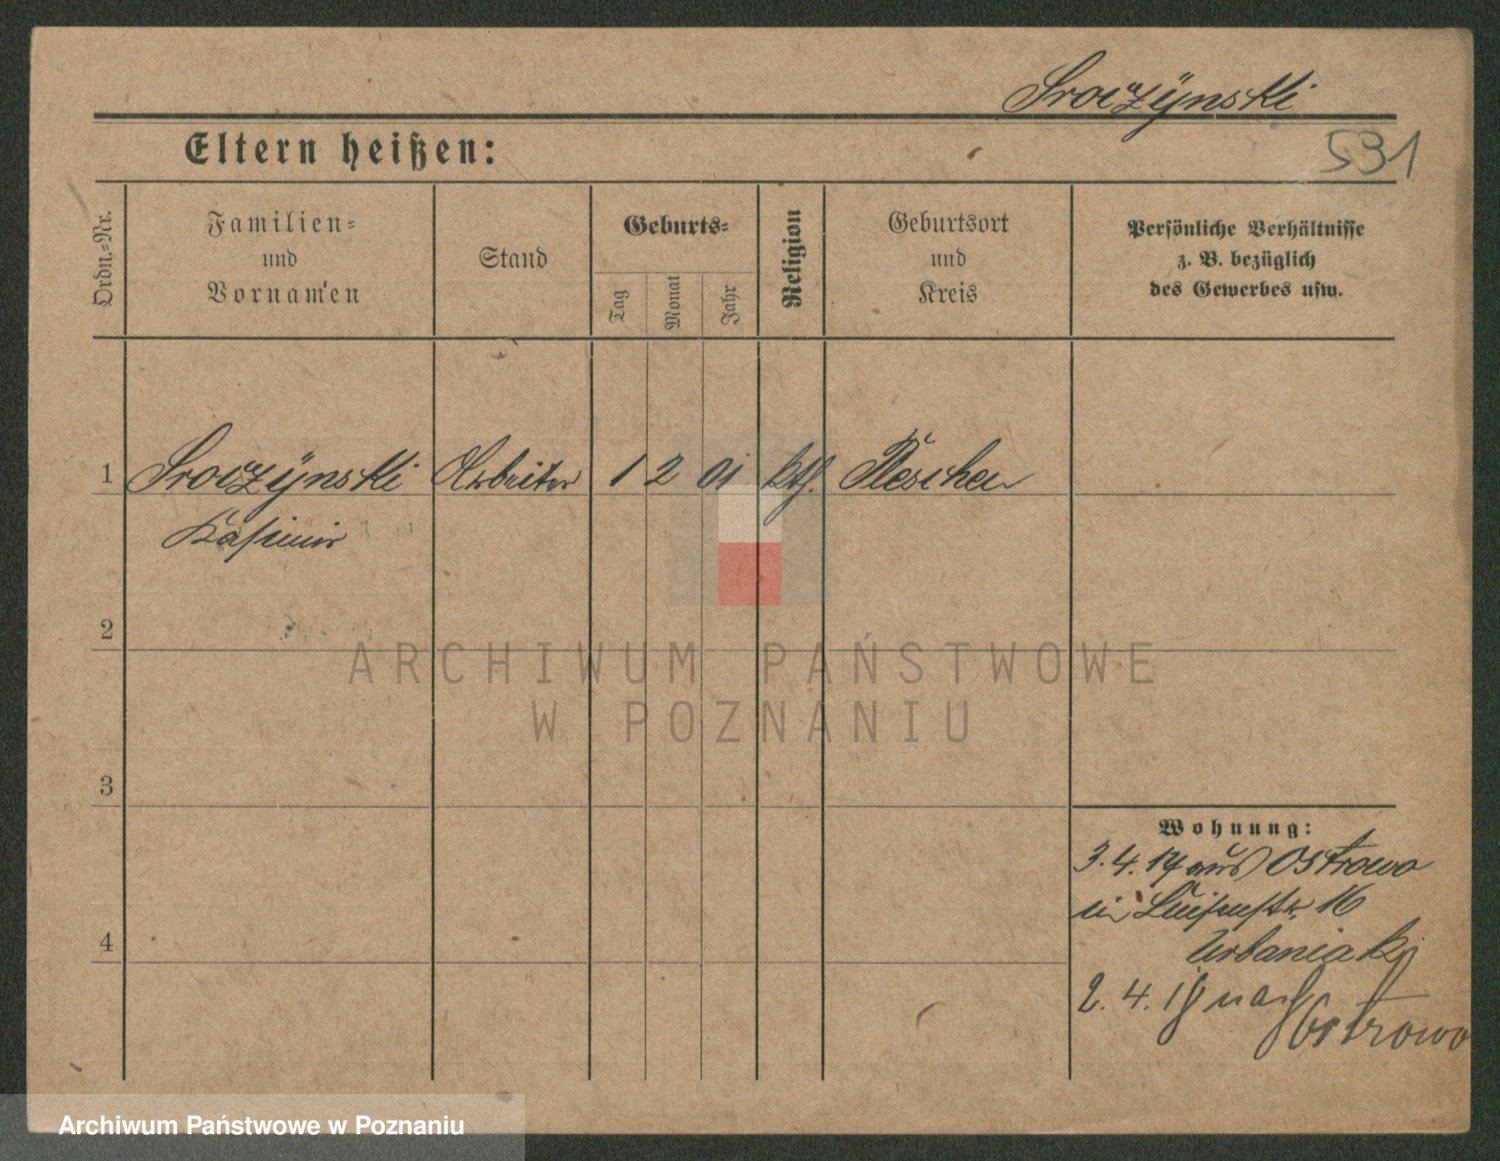 Sroczÿnski
Eltern heißen:
531
Ordn.-Nr.
Familien-
und
Vornamen
Stand
Geburts-
Tag
Monat
Jahr
Religion
Geburtsort
und
Kreis
Persönliche Verhältnisse
z. B. bezüglich
des Gewerbes usw.
1 Sroczÿnski Arbeiter 1 2 01 kth. Pleschen
Kasimir
2
3
4
Wohnung:
3. 4. 17 aus Ostrowo
in Luisenstr. 16
Urbaniak
2. 4. 18 nach Ostrowo
ARCHIWUM PAŃSTWOWE
W POZNANIU
Archiwum Państwowe w Poznaniu